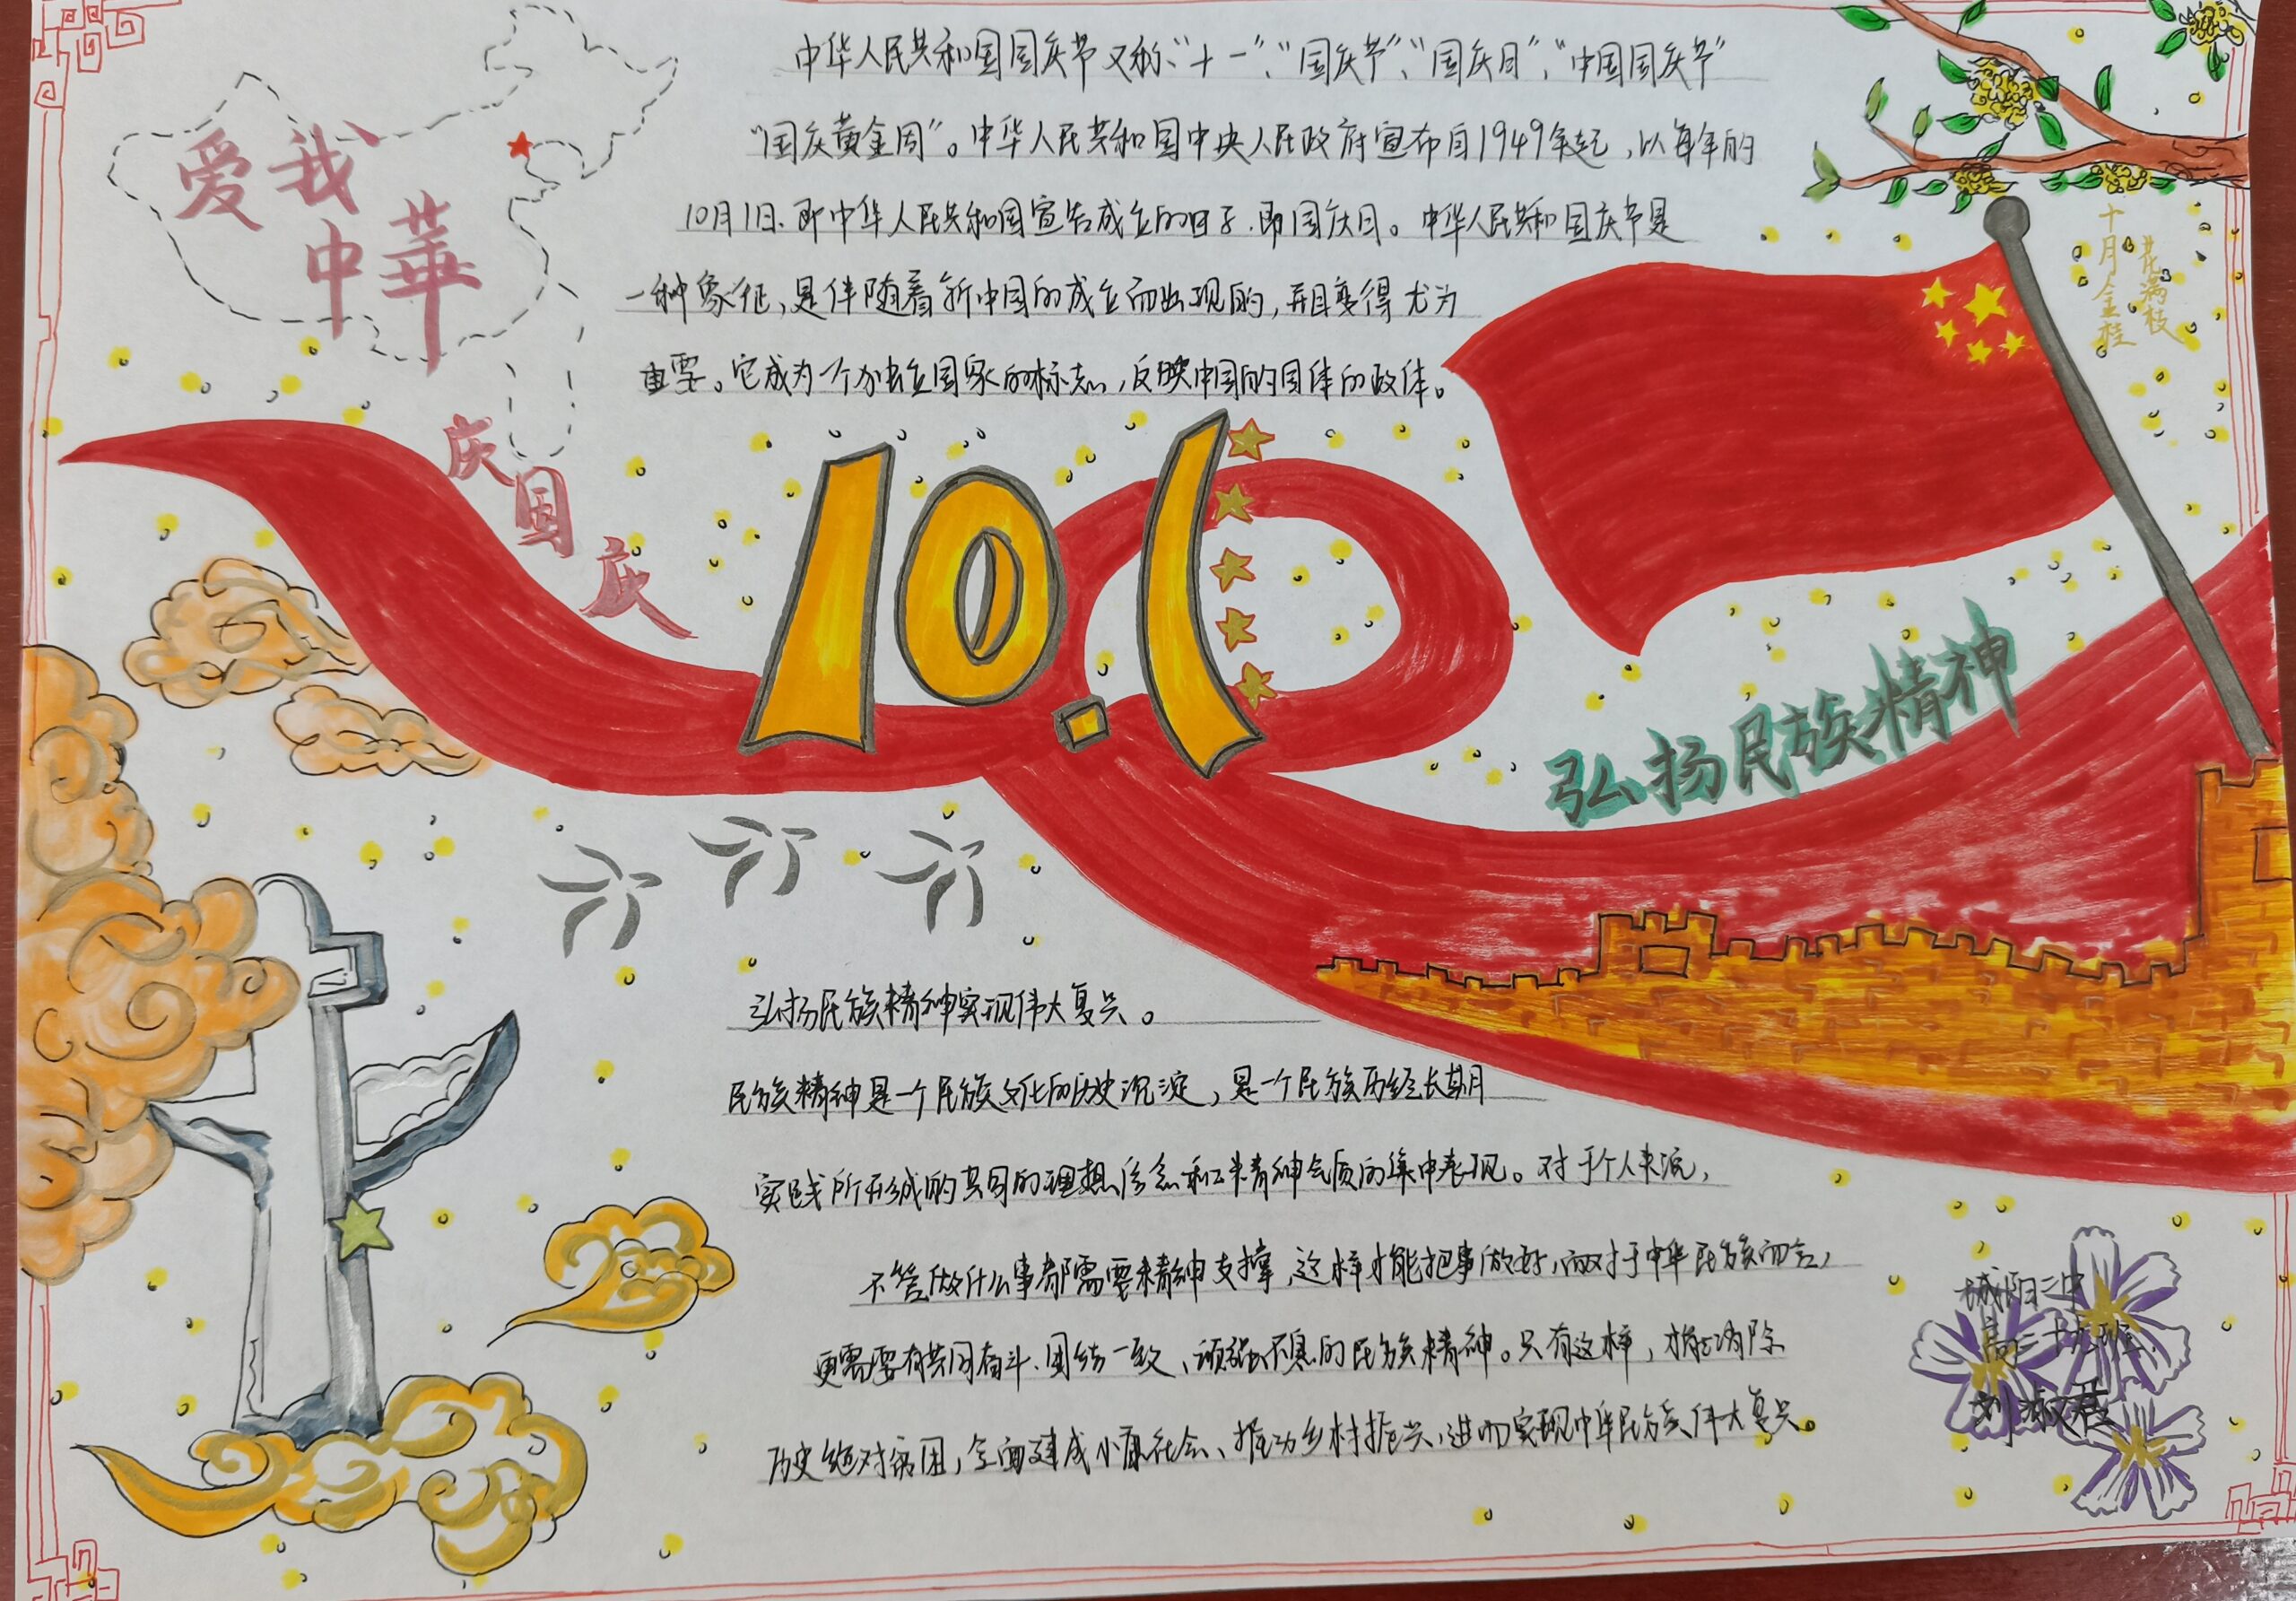 爱我
中華
庆
国
庆
中华人民共和国国庆节又称“十一”、“国庆节”、“国庆日”、“中国国庆节”
“国庆黄金周”。中华人民共和国中央人民政府宣布自1949年起，以每年的
10月1日、即中华人民共和国宣告成立的日子、即国庆日。中华人民共和国庆节是
一种象征，是伴随着新中国的成立而出现的，并且变得尤为
重要。它成为一个独立国家的标志，反映中国的国体的政体。
十月金桂
花满枝
10.1
弘扬民族精神
弘扬民族精神实现伟大复兴。
民族精神是一个民族文化的历史沉淀，是一个民族历经长期
实践所形成的共同的理想信念和精神气质的集中表现。对于个人来说，
不管做什么事都需要精神支撑，这样才能把事做好，而对于中华民族而言，
更需要有共同奋斗、团结一致、顽强不息的民族精神。只有这样，才能消除
历史绝对贫困，全面建成小康社会、推动乡村振兴，进而实现中华民族伟大复兴。
城阳二中
高二十九班
刘淑君